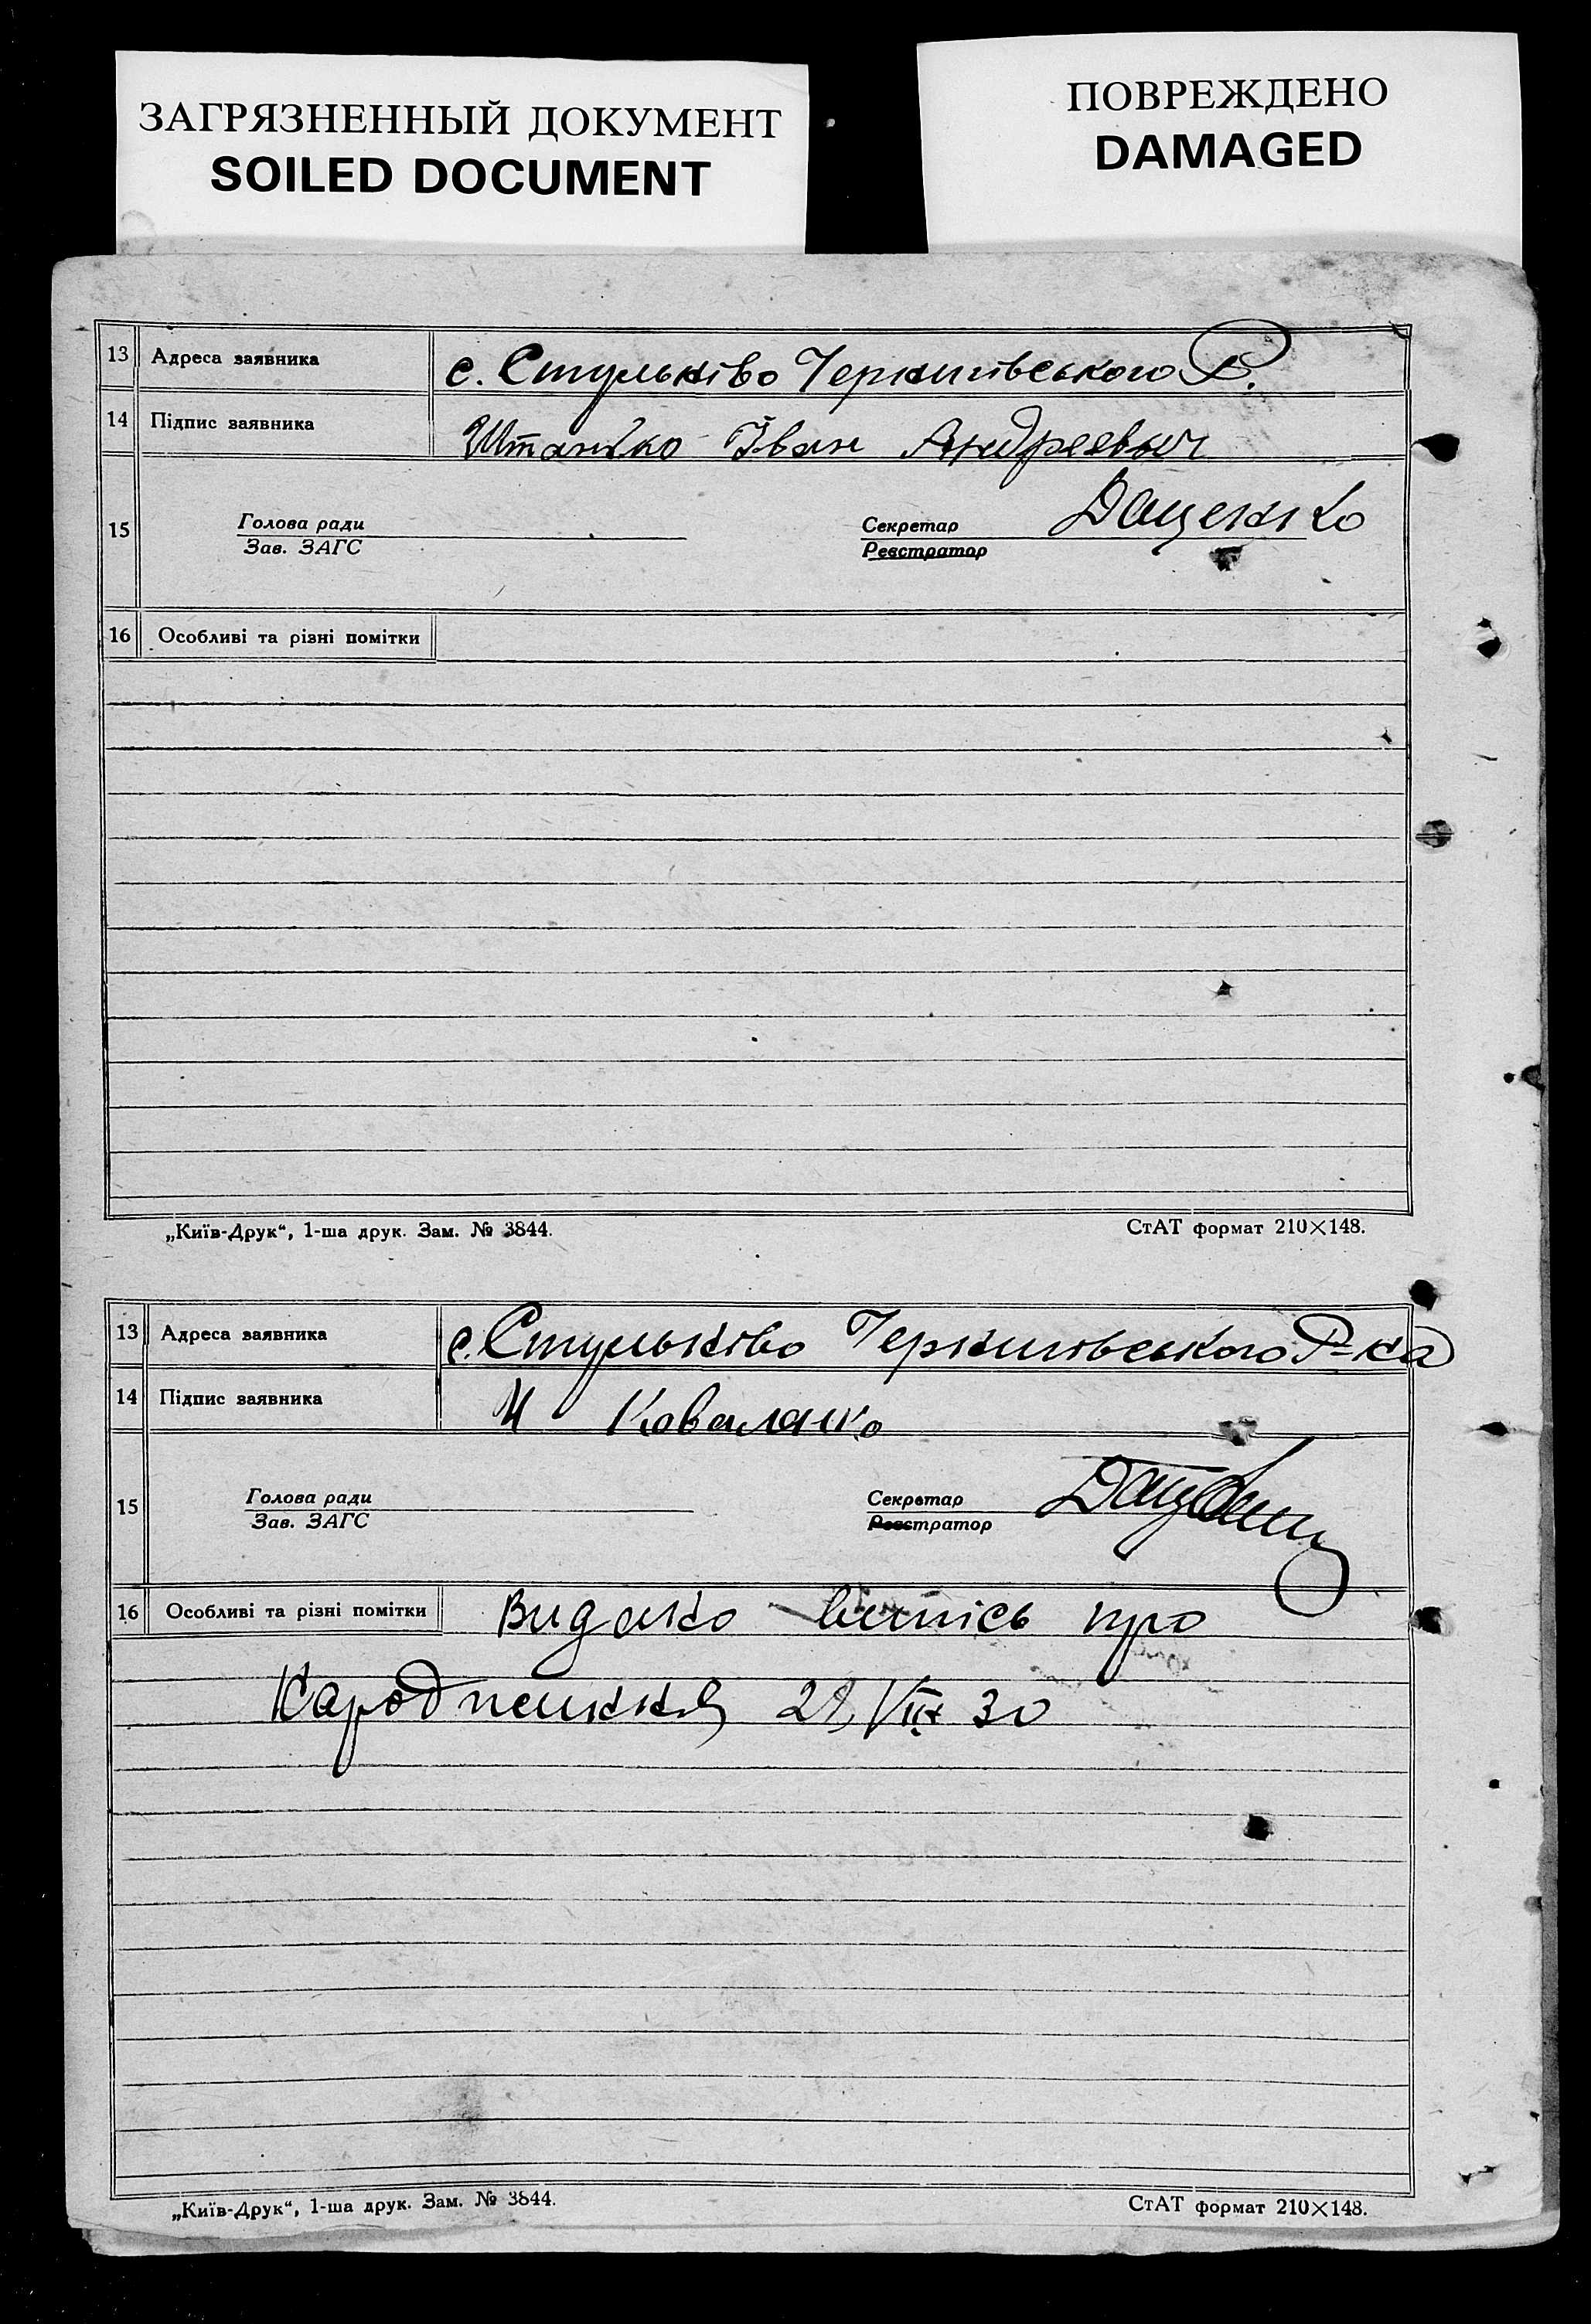 ЗАГРЯЗНЕННЫЙ ДОКУМЕНТ
SOILED DOCUMENT
ПОВРЕЖДЕНО
DAMAGED
13 Адреса заявника с. Стульніво Чернигівського Р.
14 Підпис заявника Штанько Іван Андреевич
15 Голова ради Секретар Даценко
Зав. ЗАГС Реєстратор
16 Особливі та різні помітки
„Київ-Друк“, 1-ша друк. Зам. № 3844. СтАТ формат 210×148.
13 Адреса заявника с. Стульніво Чернигівського Р-на
14 Підпис заявника И Коваленко
15 Голова ради Секретар
Зав. ЗАГС Реєстратор
16 Особливі та різні помітки Видано випісь про
народження 30
„Київ-Друк“, 1-ша друк. Зам. № 3844. СтАТ формат 210×148.